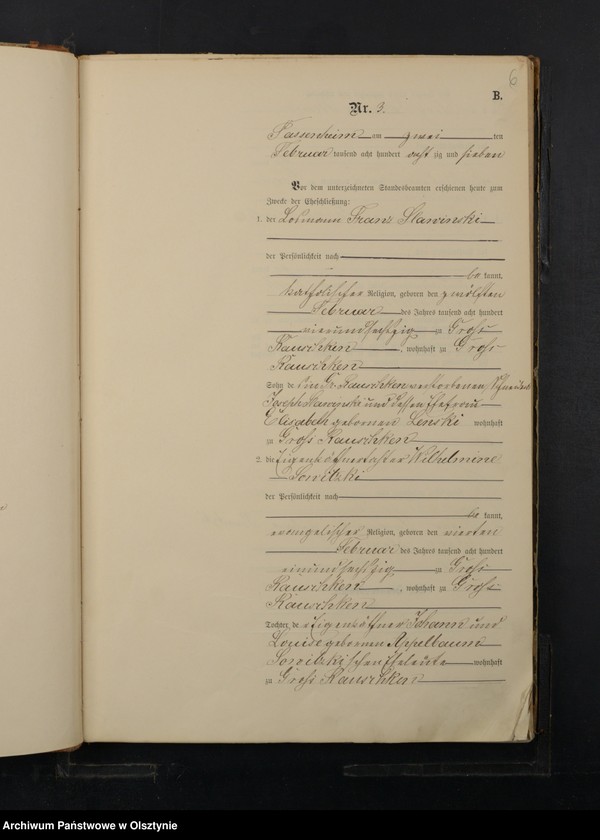 6
B.
Nr. 3.
Passenheim am zwei ten
Februar tausend acht hundert acht zig und sieben
Vor dem unterzeichneten Standesbeamten erschienen heute zum
Zwecke der Eheschließung:
1. der Losmann Franz Slawinski
der Persönlichkeit nach
be kannt,
katholischer Religion, geboren den zwölften
Februar des Jahres tausend acht hundert
vierundsechszig zu Groß
Rauschken, wohnhaft zu Groß
Rauschken
Sohn des in Gr. Rauschken verstorbenen Schneiders
Joseph Slawinski und dessen Ehefrau
Elisabeth gebornen Lenski wohnhaft
zu Groß Rauschken
2. die Eigenkäthnertochter Wilhelmine
Sowitzki
der Persönlichkeit nach
be kannt,
evangelischer Religion, geboren den vierten
Februar des Jahres tausend acht hundert
einundsechszig zu Groß
Rauschken, wohnhaft zu Groß
Rauschken
Tochter der Eigenkäthner Johann und
Louise gebornen Appelbaum
Sowitzkischen Eheleute wohnhaft
zu Groß Rauschken
Archiwum Państwowe w Olsztynie